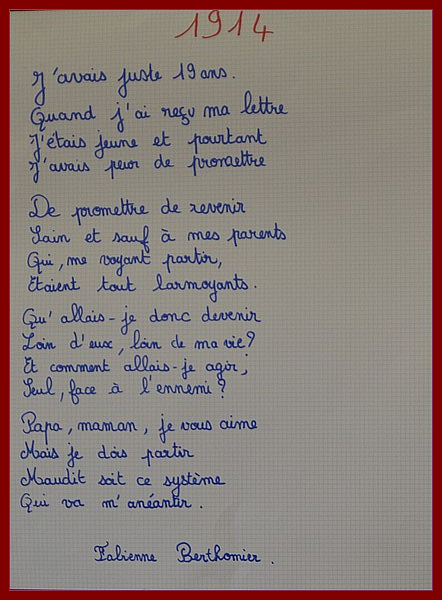 1914
J'avais juste 19 ans.
Quand j'ai reçu ma lettre
J'étais jeune et pourtant
J'avais peur de promettre
De promettre de revenir
Sain et sauf à mes parents
Qui, me voyant partir,
Etaient tout larmoyants.
Qu'allais-je donc devenir
Loin d'eux, loin de ma vie?
Et comment allais-je agir,
Seul, face à l'ennemi?
Papa, maman, je vous aime
Mais je dois partir
Maudit soit ce système
Qui va m'anéantir.
Fabienne Berthomier.